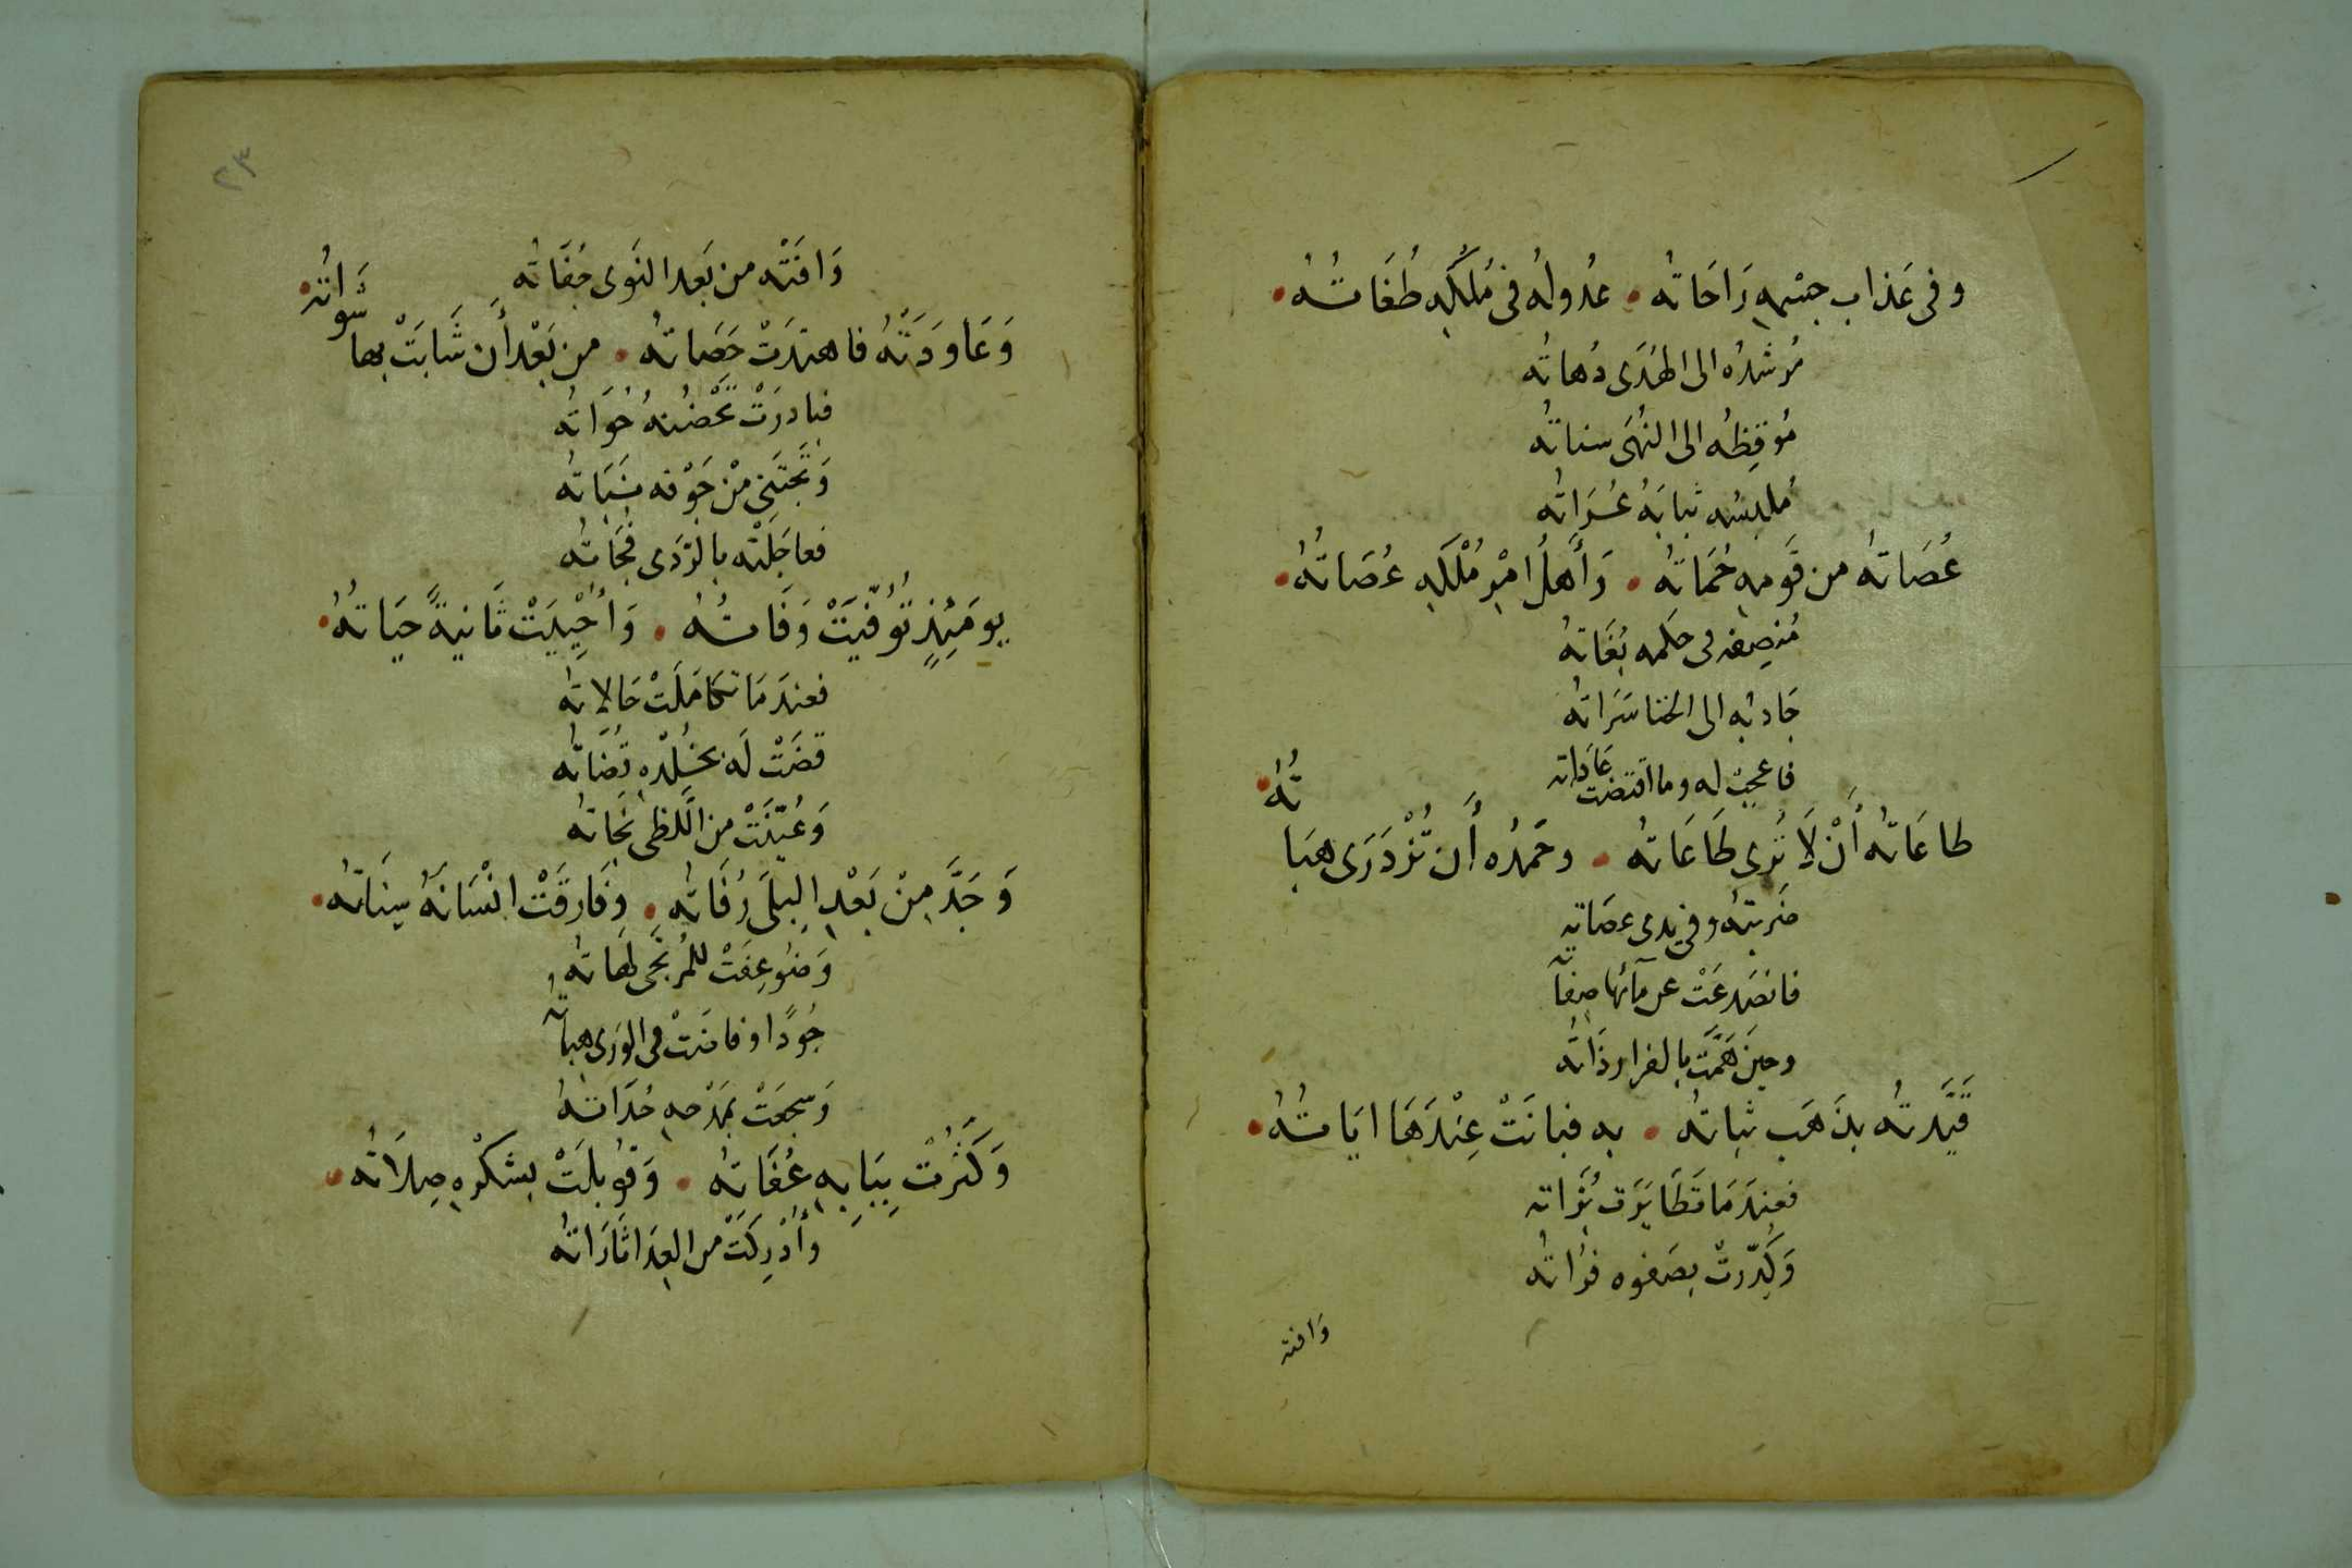 وفى عَذاب جسْمِهِ رَاحَاتُه • عُدولُهُ فى مُلكِهِ طُغَاتُهُ •
مُرشدُه الى الهُدَى دُهاتُه
مُوقِظُه الى النُهَى سناتُه
مُلبِسُه ثيابَهُ عُرَاتُه
عُصَاتُه من قَومِهِ حُمَاتُه • وَأَهلُ امْرِ مُلْكِهِ عُصَاتُهُ •
مُنصِفه فى حكمه بُغَاتُهُ
جَاذبُه الى الخنا سَرَاتُه
فاعجبْ له وما اقتضت عَادَاته
طاعَاتُه أَنْ لَا تُرى طَاعَاتُه • وحَمدُه أَن تُزْدَرَى هبَاتُهُ •
ضَربتُه وفى يدى عصَاتِه
فانصَدعَتْ عن مآئها صِفاتُه
وحينَ هَمَّت بالفرار ذَاتُه
قَيَّدتُه بذَهَب ثباتُه • به فبانَتْ عِنْدَهَا ايَاتُهُ •
فعِندَمَا تَطَايَرَت بُزَاته
وَكُدّرتْ بِصَفوه فرُاتُه
وَافته
٢٣
وَافَتْه من بَعد النَوى جُفَاتُه
وَعَاوَدَتْهُ فاهتدَتْ حَصَاتُه • من بَعْد أَن شَابَتْ بها شَوَاتُهُ •
فبادرَتْ تَحْضُنهُ حُوَاتُه
وَتَجتَنى مْن جَوْفه نبَاتُه
فعاجَلَتْه بالرّدَى فُجَاتُه
يومَئِذٍ تُوُفّيَتْ وَفَاتُهُ • وَأُحْيِيَتْ ثَانيةً حيَاتُهُ •
فعندَمَا تكَامَلَتْ حَالاتُه
قضَتْ لَه بخُلْدِهِ قُضَاتُه
وَعُيّنَتْ من اللَّظى نَجَاتُه
وَجَدَّ مِنْ بَعْدِ البِلَى رُفَاتُه • وفَارقَتْ انْسَانَهُ سِنَاتُه •
وَضُوعِفَتْ للمُرتَجى لُهَاتُه
جُودًا وفاضَتْ فى الوَرى هباتُه
وَسَجعَتْ بمَدْحِهِ حُدَاتُهُ
وَكَثُرتْ بِبَابِهِ عُفَاتُه • وَقُوبلَتْ بشكْرِهِ صِلَاتُه •
وأُدْرِكَتْ من العِدَا ثَارَاتُه